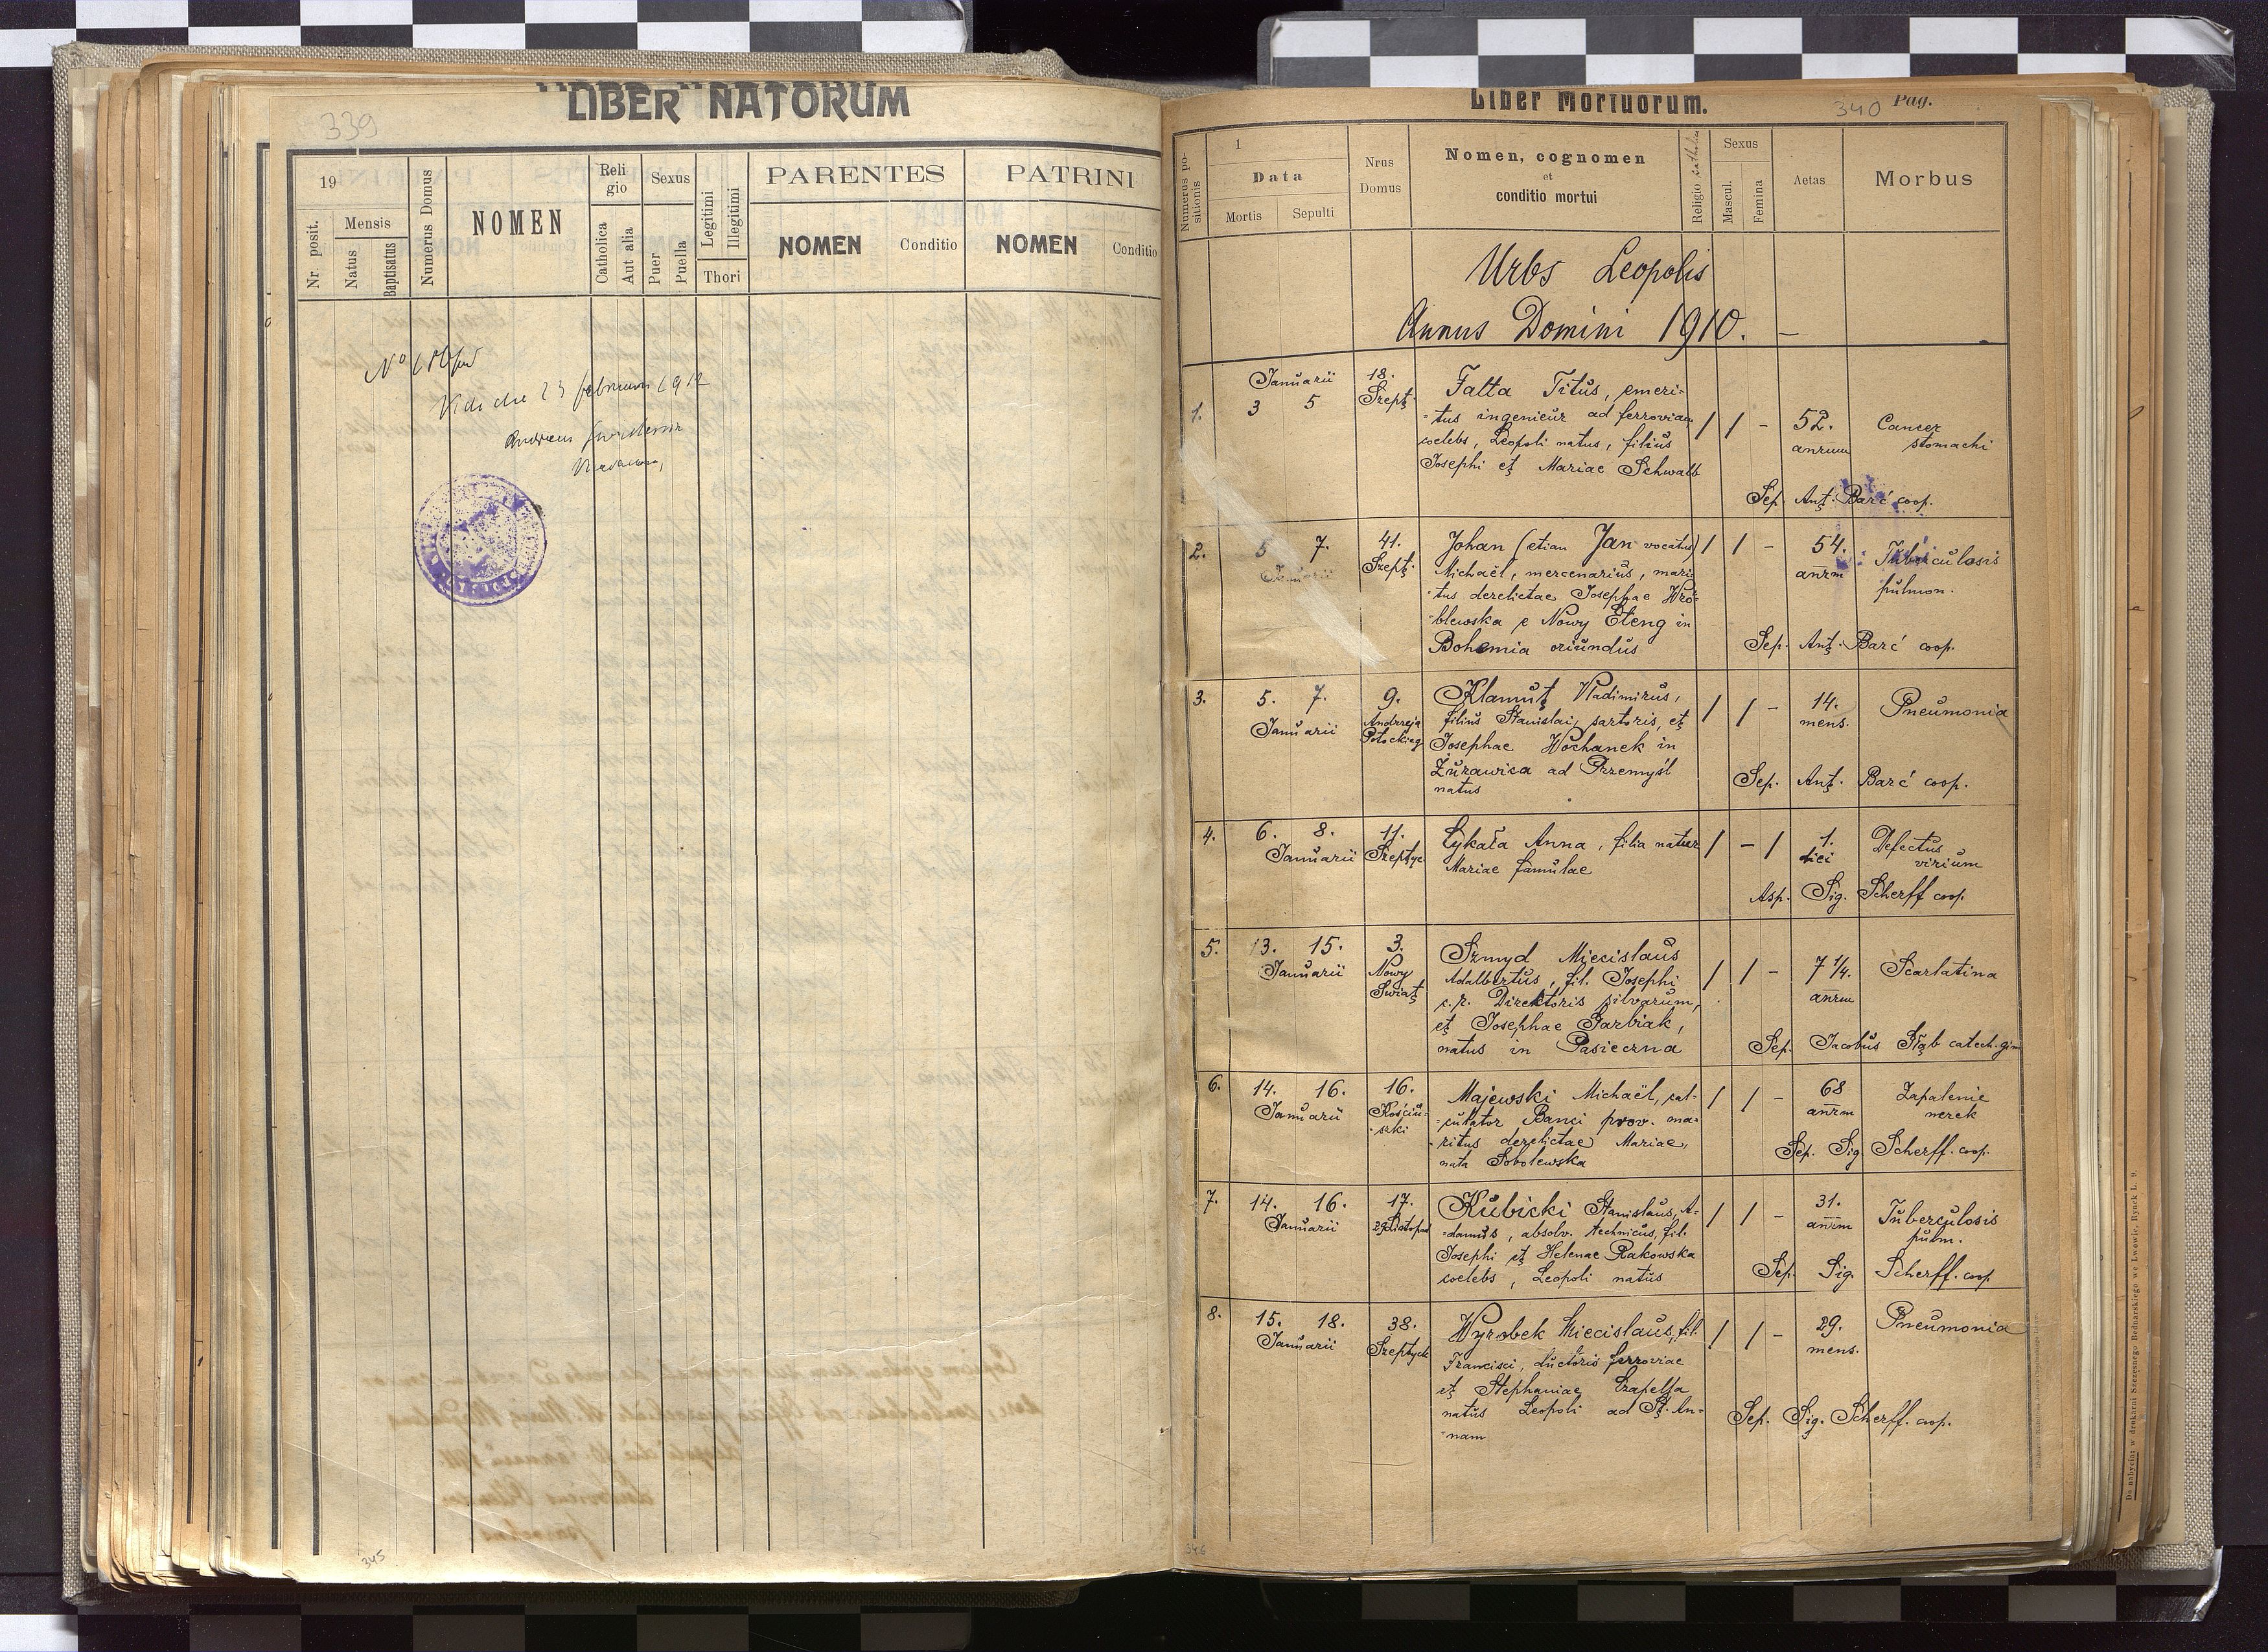 339
LIBER NATORUM
19
Nr. posit.
Mensis
Natus
Baptisatus
Numerus Domus
NOMEN
Religio
Catholica
Aut alia
Sexus
Puer
Puella
Legitimi
Illegitimi
Thori
PARENTES
NOMEN
Conditio
PATRINI
NOMEN
Conditio
No
Vidi die 23 februarii 1912
Andreas
345
Liber Mortuorum.
340 Pag.
Numerus positionis
1
Data
Mortis
Sepulti
Nrus
Domus
Nomen, cognomen
et
conditio mortui
Religio catholica
Sexus
Mascul.
Femina
Aetas
Morbus
Urbs Leopolis
Annus Domini 1910. —
1.
Januarii
3 5
18.
Szept.
Falta Titus, emeri=
=tus ingenieur ad ferroviam
coelebs, Leopoli natus, filius
Josephi et Mariae Schwalb
/ / -
52.
anrum
Cancer
stomachi
Sep. Ant. Barć coop.
2.
5 7.
Januarii
41.
Szept.
Johan (etian Jan vocatus)
Michaël, mercenarius, mari=
=tus derelictae Josephae Wró=
=blewska e Nowy Eteng in
Bohemia oriundus
/ / -
54.
anrm
Tuberculosis
pulmon.
Sep. Ant. Barć coop.
3.
5. 7.
Januarii
9.
Andrzeja
Potockieg
Klamut Vladimirus,
filius Stanislai, sartoris, et
Josephae Wochanek in
Żurawica ad Przemyśl
natus
/ / -
14.
mens.
Pneumonia
Sep. Ant. Barć coop.
4.
6. 8.
Januarii
11.
Szeptyc
Łykała Anna, filia natur
Mariae famulae
/ - /
1.
diei
Defectus
virium
Asp. Sig. Scherff coop.
5.
13. 15.
Januarii
3.
Nowy
Świat
Szmyd Miecislaus
Adalbertus, fil. Josephi
c.r. Direktoris silvarum,
et Josephae Garbiak,
natus in Pasieczna
/ / -
7 1/4.
anrm
Scarlatina
Sep. Jacobus Słąb catech. gim
6.
14. 16.
Januarii
16.
Kościu=
=szki
Majewski Michaël, cal=
=culator Banci prov. ma=
=ritus derelictae Mariae,
nata Sobolewska
/ / -
68
anrm
Zapalenie
nerek
Sep. Sig. Scherff. coop.
7.
14. 16.
Januarii
17.
29 Listopad
Kubicki Stanislaus, A=
=damus, absolv. technicus, fil.
Josephi et Helenae Rakowska
coelebs, Leopoli natus
/ / -
31.
anrm
Tuberculosis
pulm.
Sep. Sig. Scherff. coop.
8.
15. 18.
Januarii
38.
Szeptyck
Wyrobek Miecislaus, fil.
Francisci, ductoris ferroviae
et Stephaniae Czapella
natus Leopoli ad St. An=
=nam
/ / -
29.
mens.
Pneumonia
Sep. Sig. Scherff. coop.
346
Do nabycia w drukarni Szczęsnego Bednarskiego we Lwowie, Rynek L. 9.